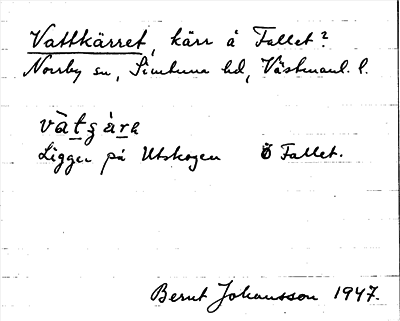 Vattkärret, kärr å Fallet?
Norrby sn, Simtuna hd, Västmanl. l.
vàtꞩàrə
Ligger på Utskogen Ö Fallet.
Bernt Johansson 1947.